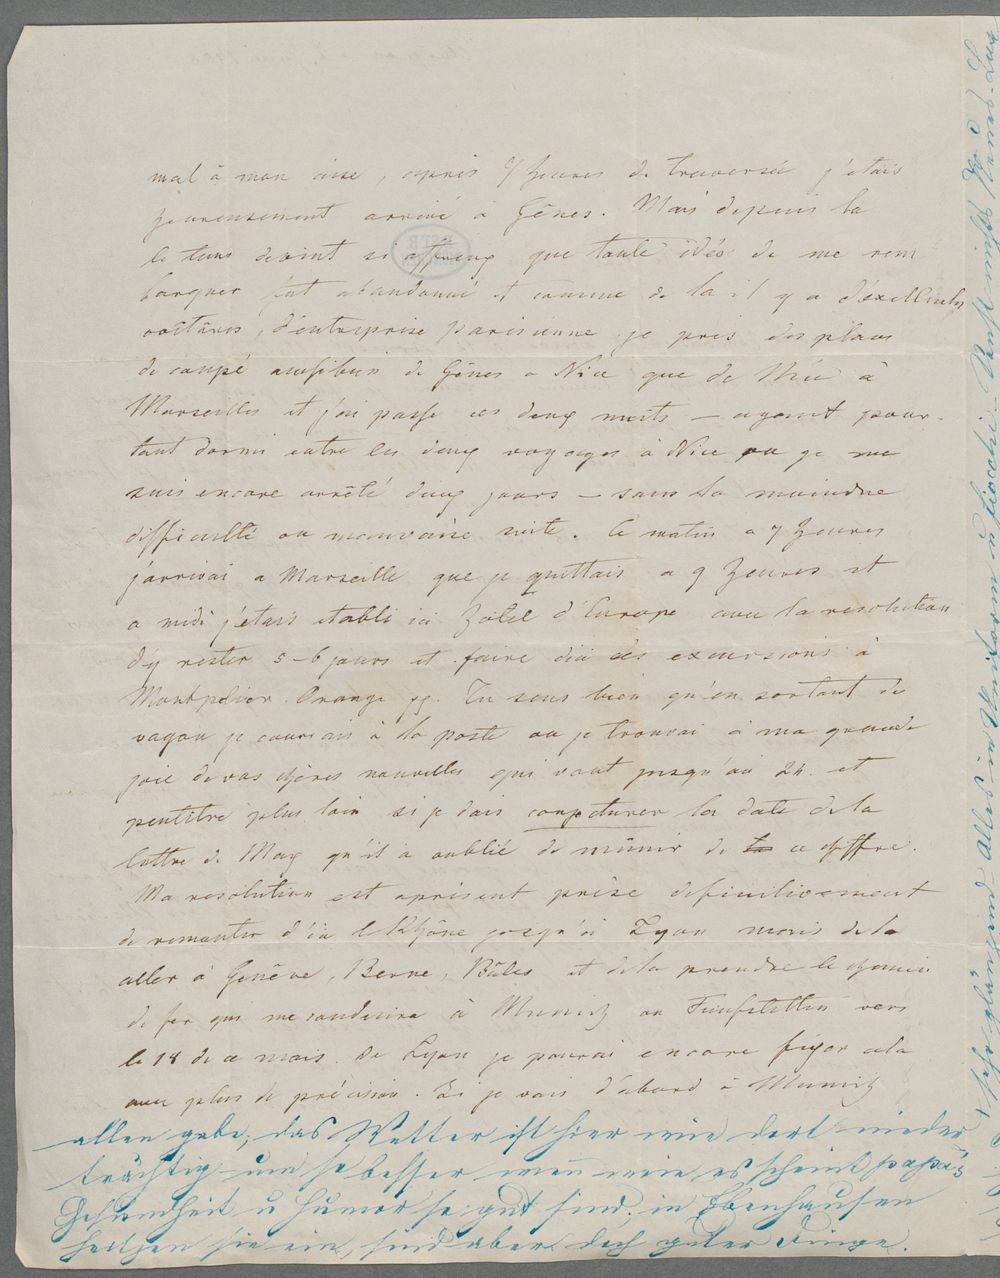 mal à mon aise, après 7 heures de traversée j'étais
heureusement arrivé à Gênes. Mais depuis la
le tems devint si affreux que toute idée de me rem
barquer fut abandonné et comme de la il y a d'éxcellentes
voitûres, d'entreprise parisienne je pris des places
de coupé aussibien de Gênes a Nice que de Nice à
Marseilles et j'ai passé ces deux nuits – ayant pour-
tant dormi entre les deux voyages à Nice ou je me
suis encore arrêté deux jours – sans la moindre
difficulté ou mauvaise suite. Ce matin a 7 heures
j'arrivai a Marseille que je quittais a 9 heures et
a midi j'étais etabli ici hôtel d'Europe avec la resolution
d'y rester 5-6 jours et faire d'ici des excursions à
Montpelier Orange pp. Tu sens bien qu'en sortant de
vagon je courais à la poste ou je trouvai à ma grande
joie de vos chères nouvelles qui vont jusqu'au 24. et
peutêtre plus loin si je dois conjecturer la date de la
lettre de Max qu'il a oublié de mûnir de ce chiffre.
Ma resolution est aprésent prise definitivement
de remonter d'ici le Rhône jusqu'à Lyon mais de la
aller à Genêve, Berne, Bâles et de la prendre le chemin
de fer qui me conduira à Munich ou Tiefstetten vers
le 18 de ce mois. De Lyon je pourai encore fixer cela
avec plus de précision. Si je vais d'abord à Munich
allen gebe; das Wetter ist hier wie dort nieder
trächtig um so besser wen wie es scheint papa's
Gesundheit u Humor so gut sind; in Ebenhausen
heitzen sie ein, sind aber doch guter Dinge.
sehr glänzend alles in Uniform u